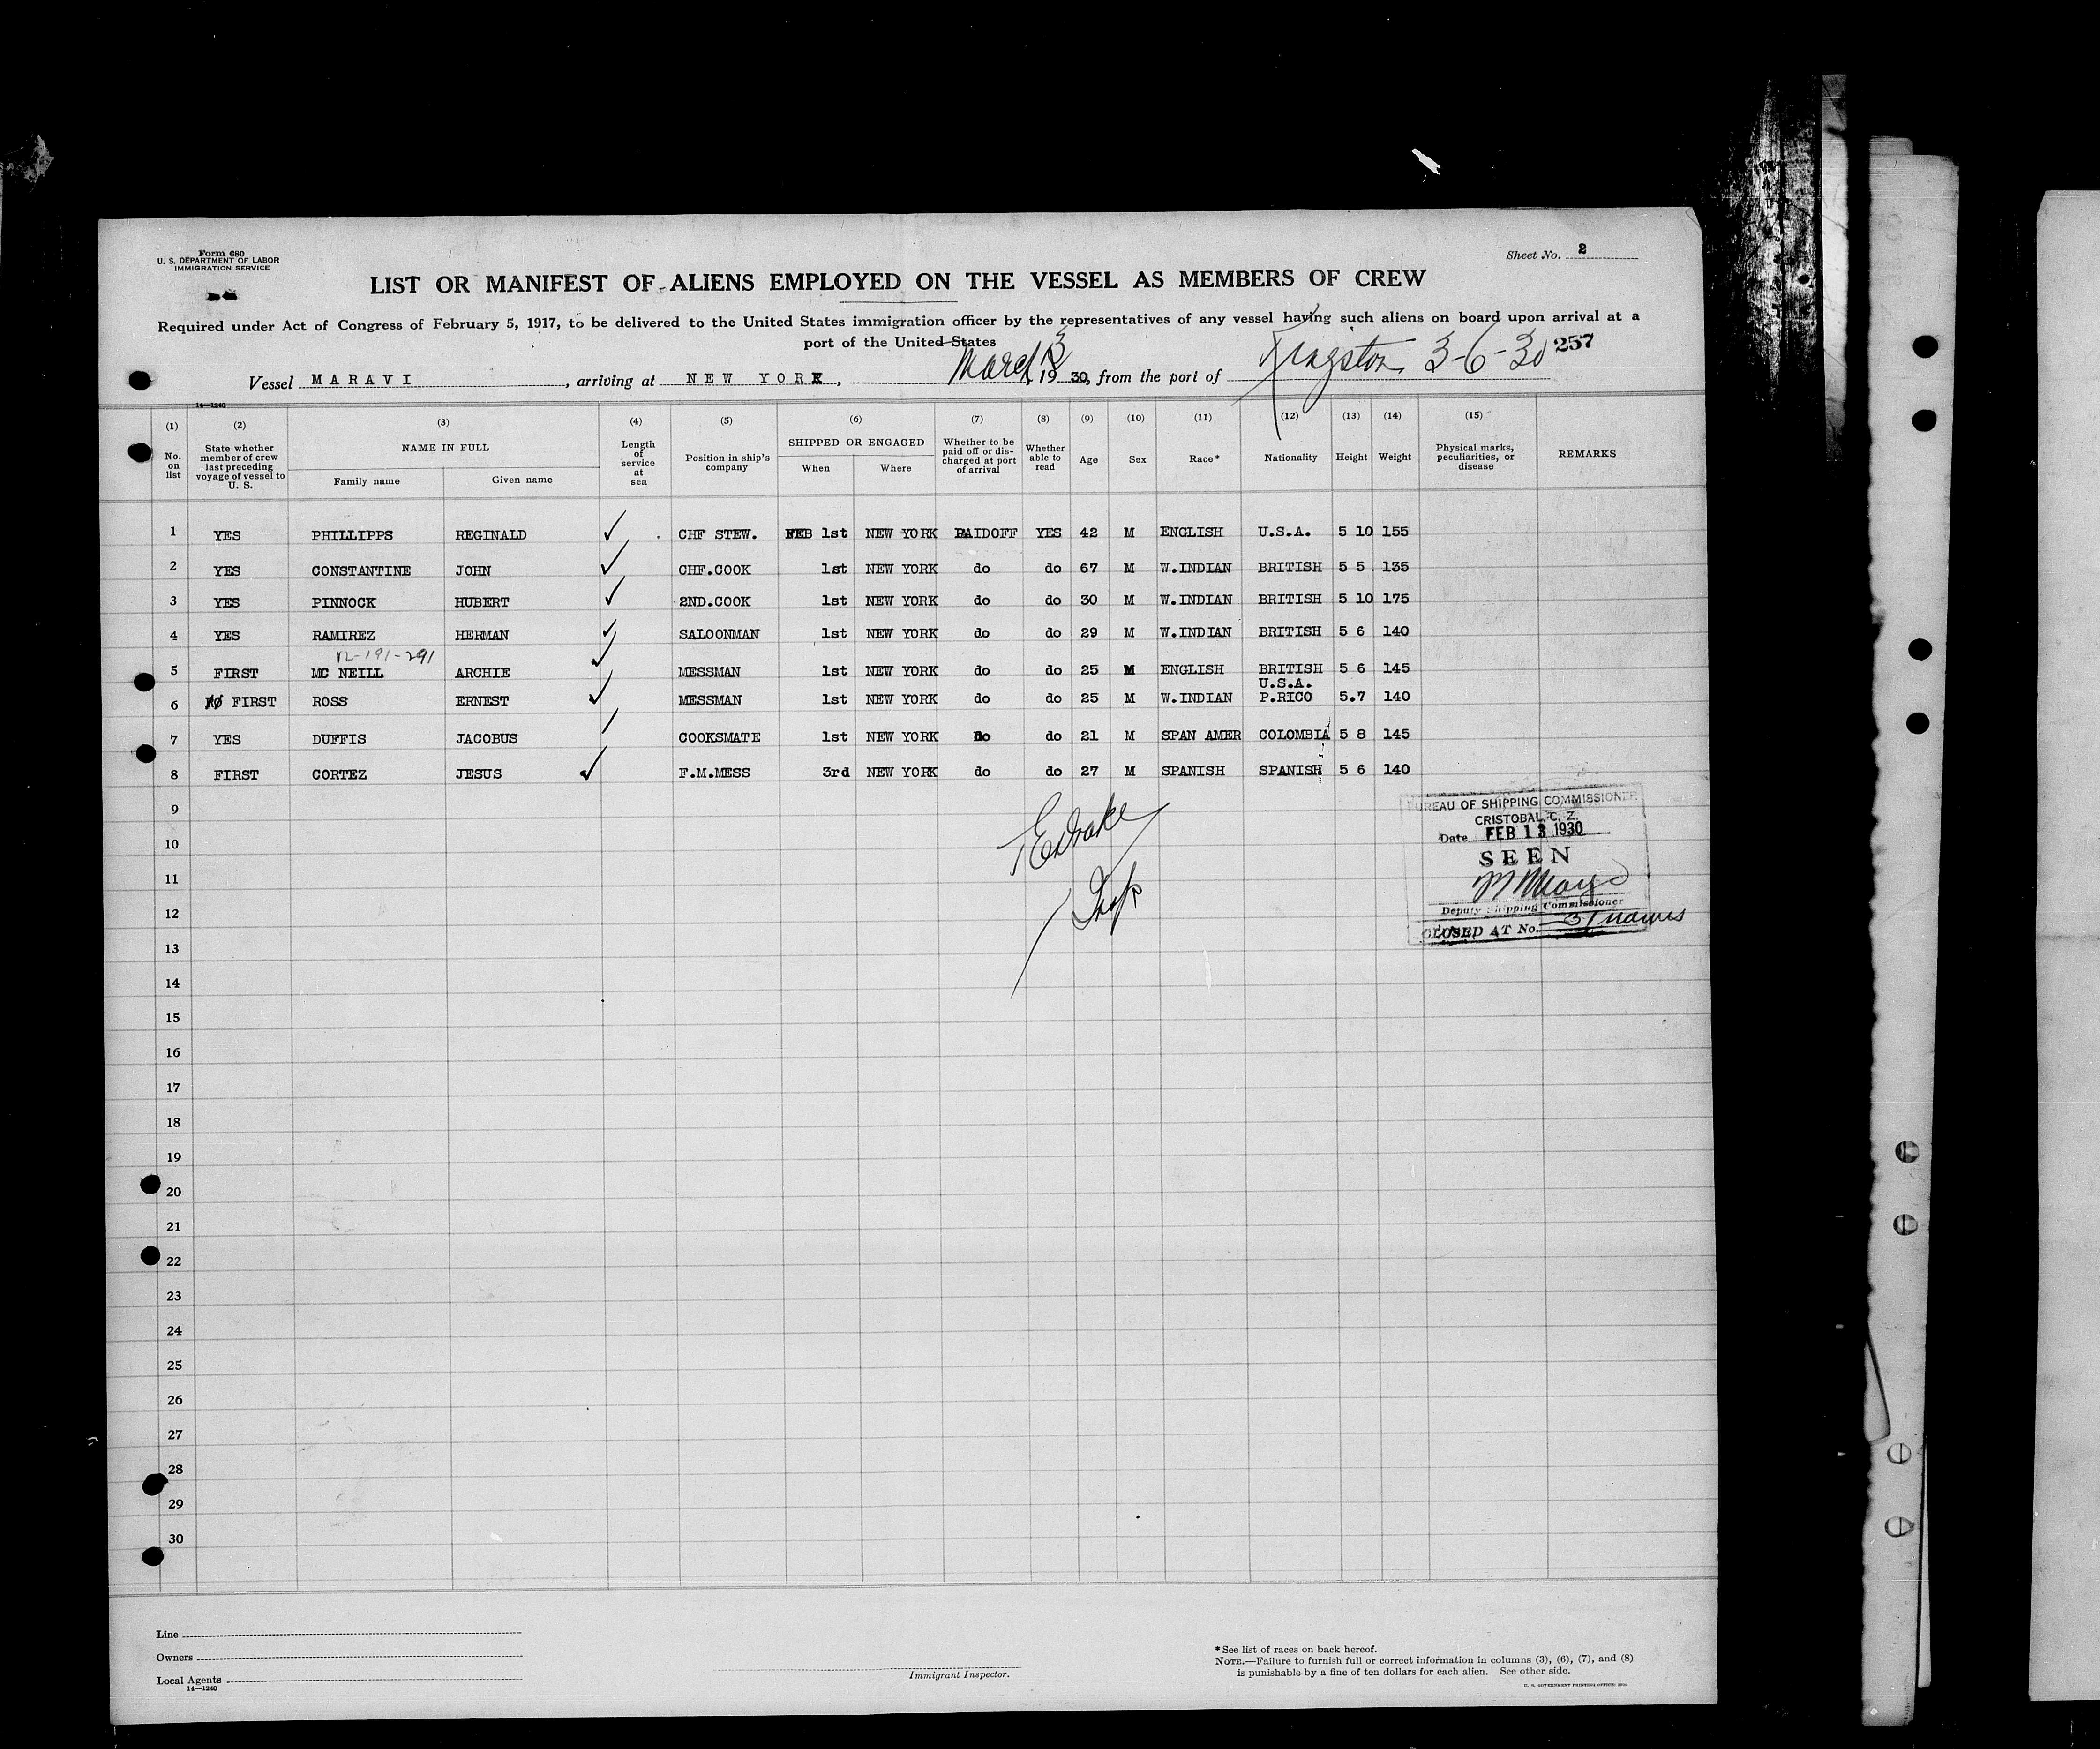 Form 680
U. S. DEPARTMENT OF LABOR
IMMIGRATION SERVICE
Sheet No. 2
LIST OR MANIFEST OF ALIENS EMPLOYED ON THE VESSEL AS MEMBERS OF CREW
Required under Act of Congress of February 5, 1917, to be delivered to the United States immigration officer by the representatives of any vessel having such aliens on board upon arrival at a
port of the United States
257
Vessel MARAVI, arriving at NEW YORK, March 13 1930, from the port of Kingston 3-6-30
14—1240
(1) (2) (3) (4) (5) (6) (7) (8) (9) (10) (11) (12) (13) (14) (15)
No. on list State whether member of crew last preceding voyage of vessel to U. S. NAME IN FULL Family name Given name Length of service at sea Position in ship's company SHIPPED OR ENGAGED When Where Whether to be paid off or discharged at port of arrival Whether able to read Age Sex Race* Nationality Height Weight Physical marks, peculiarities, or disease REMARKS
1 YES PHILLIPPS REGINALD ✓ CHF STEW. FEB 1st NEW YORK PAIDOFF YES 42 M ENGLISH U.S.A. 5 10 155
2 YES CONSTANTINE JOHN ✓ CHF.COOK 1st NEW YORK do do 67 M W.INDIAN BRITISH 5 5 135
3 YES PINNOCK HUBERT ✓ 2ND.COOK 1st NEW YORK do do 30 M W.INDIAN BRITISH 5 10 175
4 YES RAMIREZ HERMAN ✓ SALOONMAN 1st NEW YORK do do 29 M W.INDIAN BRITISH 5 6 140
12-191-291
5 FIRST MC NEILL ARCHIE ✓ MESSMAN 1st NEW YORK do do 25 M ENGLISH BRITISH 5 6 145
U.S.A.
6 FIRST ROSS ERNEST ✓ MESSMAN 1st NEW YORK do do 25 M W.INDIAN P.RICO 5.7 140
7 YES DUFFIS JACOBUS COOKSMATE 1st NEW YORK do do 21 M SPAN AMER COLOMBIA 5 8 145
8 FIRST CORTEZ JESUS ✓ F.M.MESS 3rd NEW YORK do do 27 M SPANISH SPANISH 5 6 140
9
10
11
12
13
14
15
16
17
18
19
20
21
22
23
24
25
26
27
28
29
30
Drake
Insp
BUREAU OF SHIPPING COMMISSIONER
CRISTOBAL, C. Z.
Date FEB 13 1930
SEEN
Deputy Shipping Commissioner
CLOSED AT No. 31 names
Line
Owners
Local Agents
14—1240
Immigrant Inspector.
* See list of races on back hereof.
NOTE.—Failure to furnish full or correct information in columns (3), (6), (7), and (8)
is punishable by a fine of ten dollars for each alien. See other side.
U. S. GOVERNMENT PRINTING OFFICE: